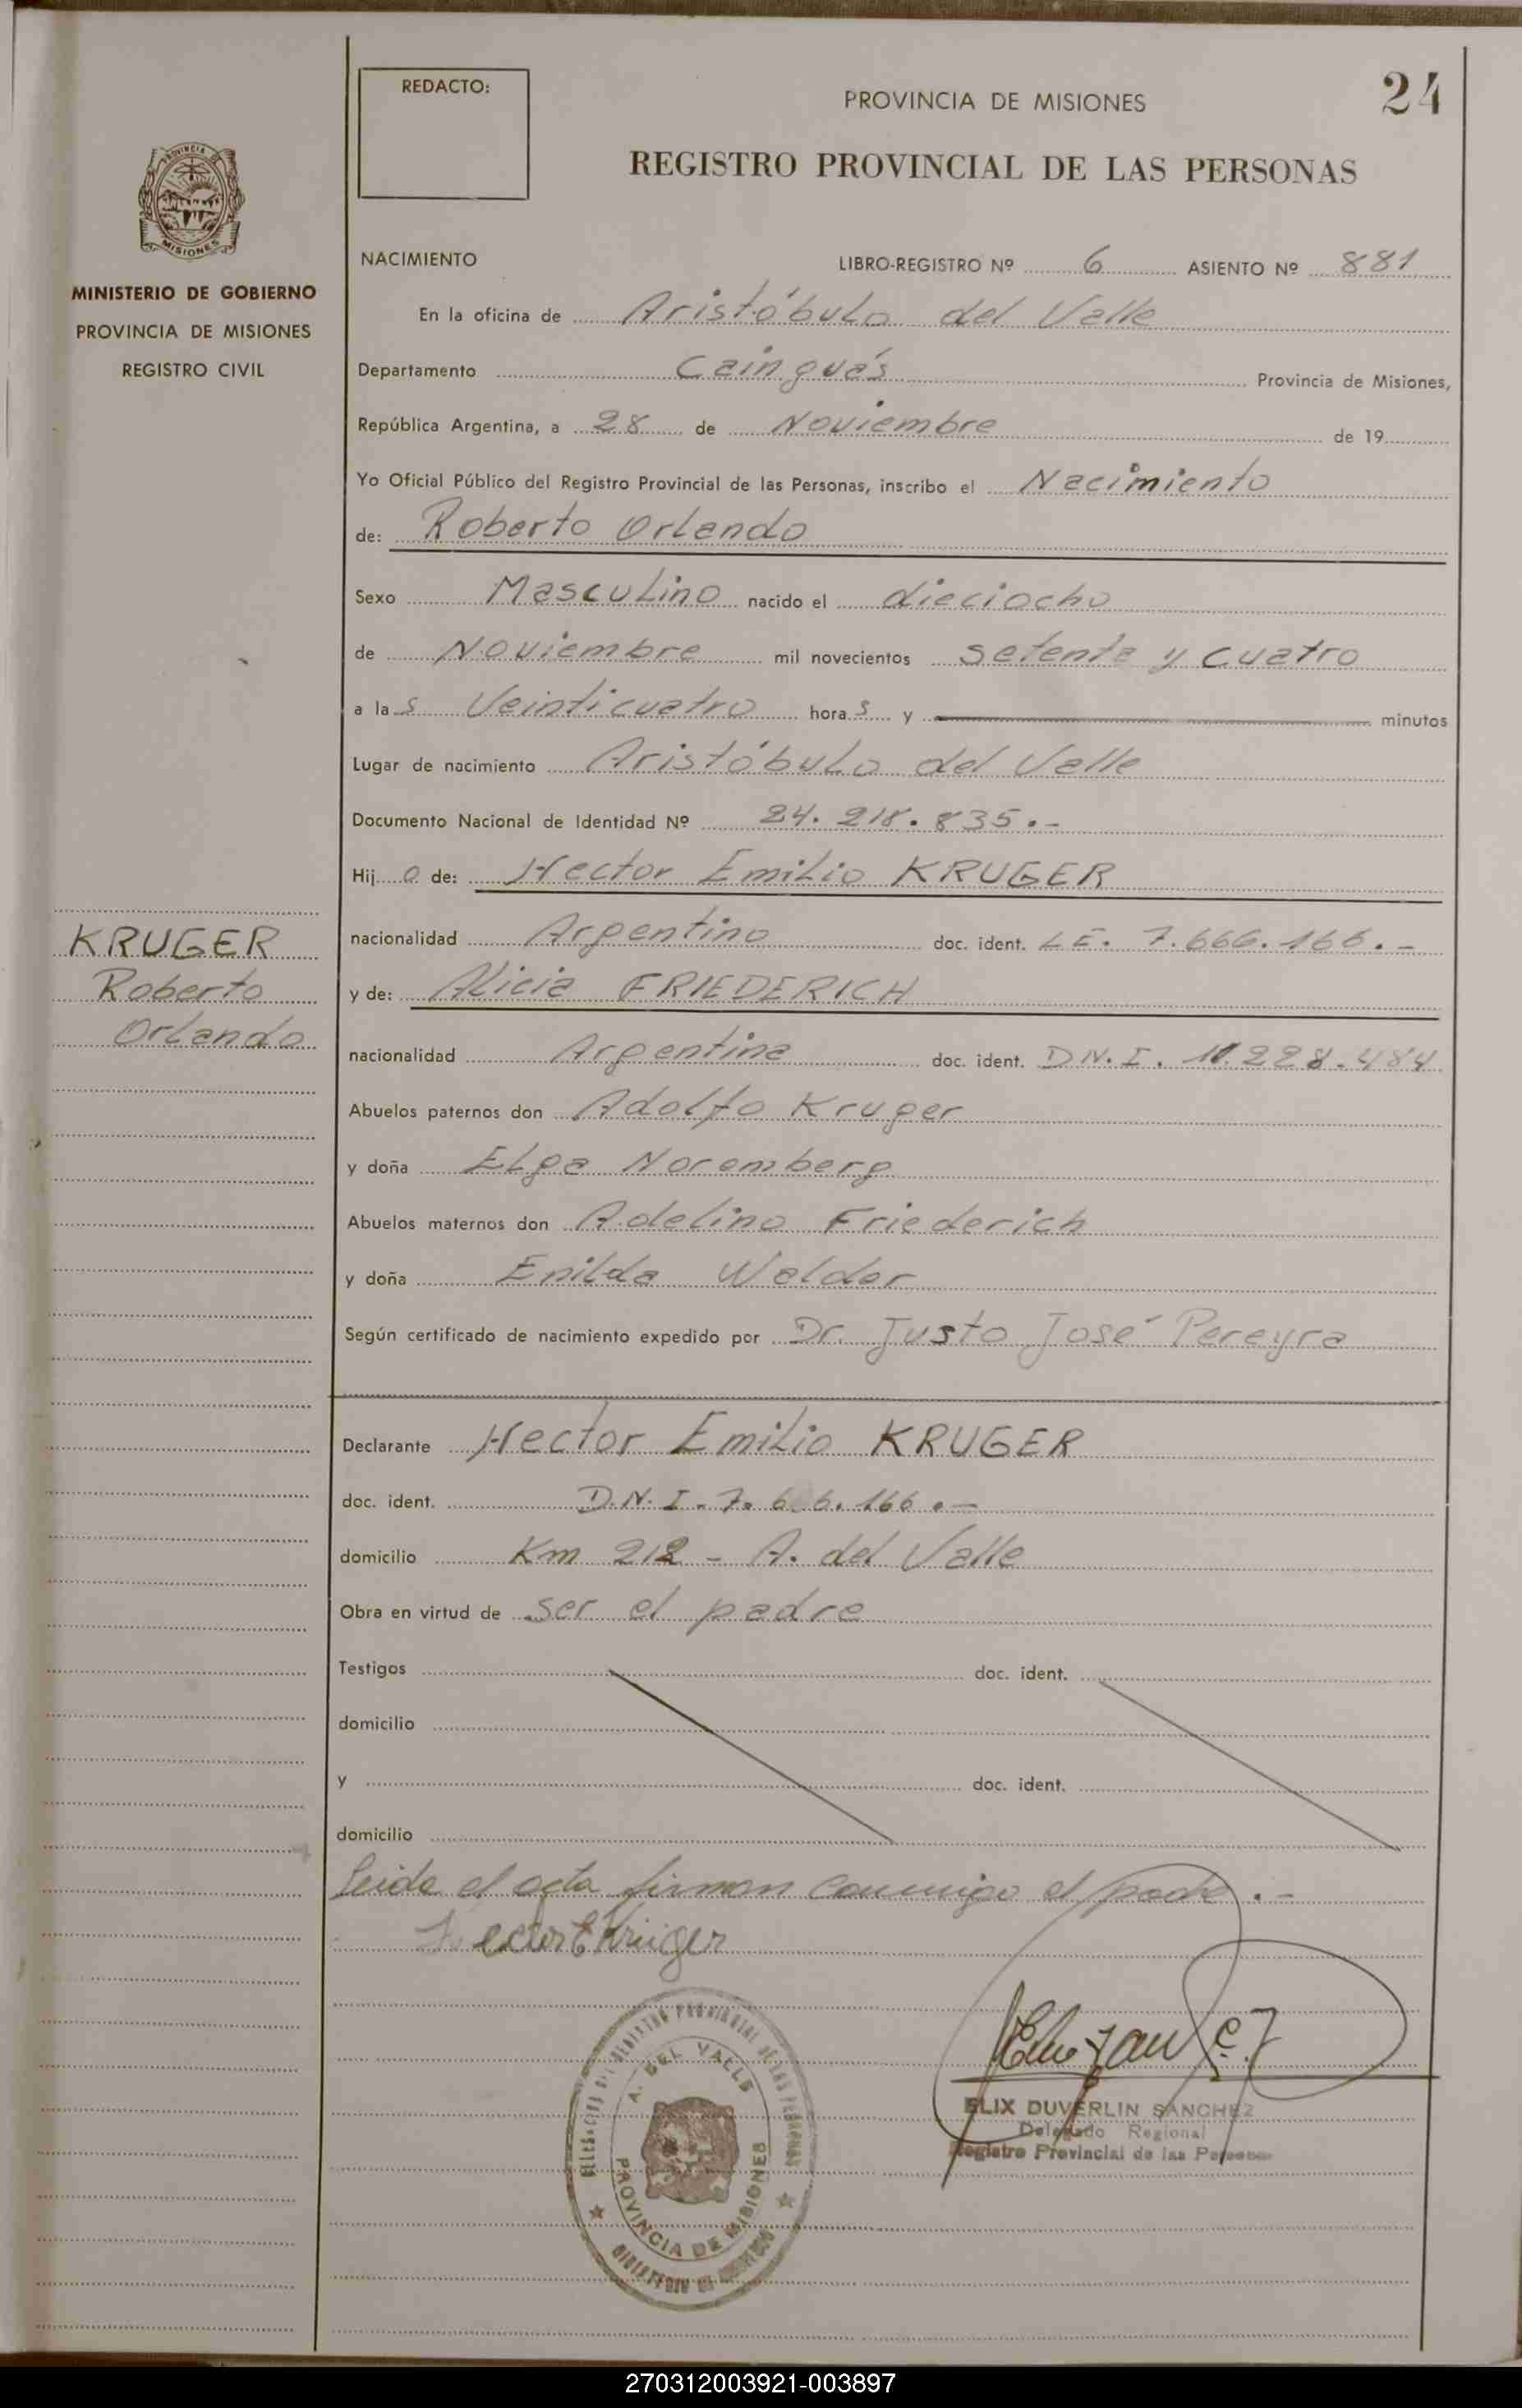 REDACTO:
PROVINCIA DE MISIONES
24
REGISTRO PROVINCIAL DE LAS PERSONAS
PROVINCIA DE
MISIONES
MINISTERIO DE GOBIERNO
PROVINCIA DE MISIONES
REGISTRO CIVIL
NACIMIENTO LIBRO-REGISTRO Nº 6 ASIENTO Nº 881
En la oficina de Aristóbulo del Valle
Departamento Cainguás Provincia de Misiones,
República Argentina, a 28 de Noviembre de 19
Yo Oficial Público del Registro Provincial de las Personas, inscribo el Nacimiento
de: Roberto Orlando
Sexo Masculino nacido el dieciocho
de Noviembre mil novecientos setenta y cuatro
a las Veinticuatro horas y minutos
Lugar de nacimiento Aristóbulo del Valle
Documento Nacional de Identidad Nº 24.218.835.-
Hijo de: Hector Emilio KRUGER
KRUGER
Roberto
Orlando
nacionalidad Argentino doc. ident. LE. 7.666.166.-
y de: Alicia FRIEDERICH
nacionalidad Argentina doc. ident. D.N.I. 11.228.484
Abuelos paternos don Adolfo Kruger
y doña Elga Noremberg
Abuelos maternos don Adelino Friederich
y doña Enilda Welder
Según certificado de nacimiento expedido por Dr. Justo José Pereyra
Declarante Hector Emilio KRUGER
doc. ident. D.N.I. 7.666.166.-
domicilio Km 212 - A. del Valle
Obra en virtud de ser el padre
Testigos doc. ident.
domicilio
y doc. ident.
domicilio
Leida el acta firman conmigo el padre.-
Hector E Kruger
A. DEL VALLE
PROVINCIA DE MISIONES
ELIX DUVERLIN SANCHEZ
Delegado Regional
Registro Provincial de las Personas
270312003921-003897